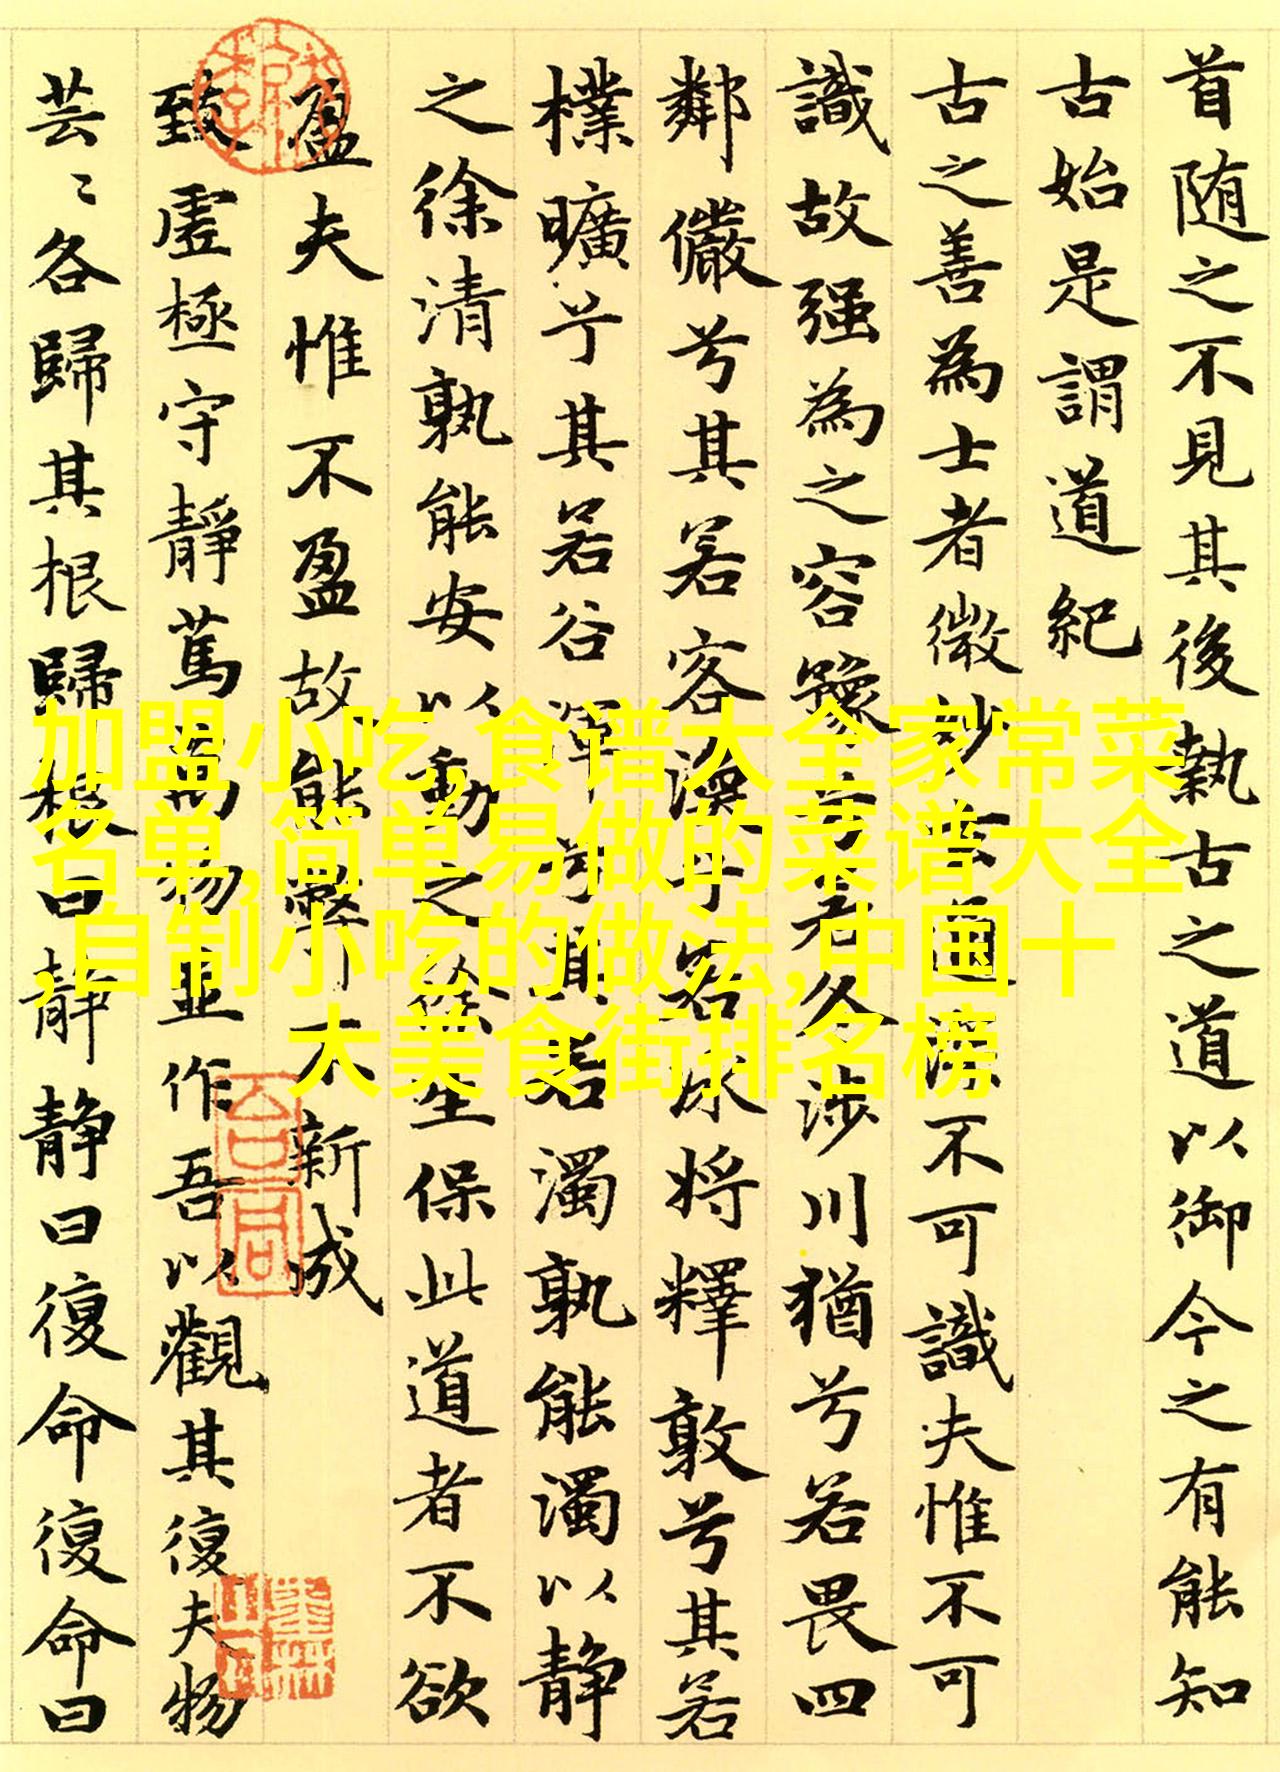 首随之不見其後執古之道以御今之有能知
古始是謂道紀
古之善為士者微妙玄通深不可識夫惟不可
識故强為之容豫兮若冬涉川猶兮若畏四
鄰儼兮其若客渙乎若冰将釋敦兮其若
樸曠兮其若谷渾兮其若濁孰能濁以静
之徐清孰能安以動之徐生保此道者不欲
盈夫惟不盈故能弊不新成
致虚極守靜篤萬物並作吾以觀其復夫物
芸〻各歸其根歸根曰静静曰復命復命曰
加盟小吃,食谱大全家常菜
名单,简单易做的菜谱大全
,自制小吃的做法,中国十
大美食街排名榜